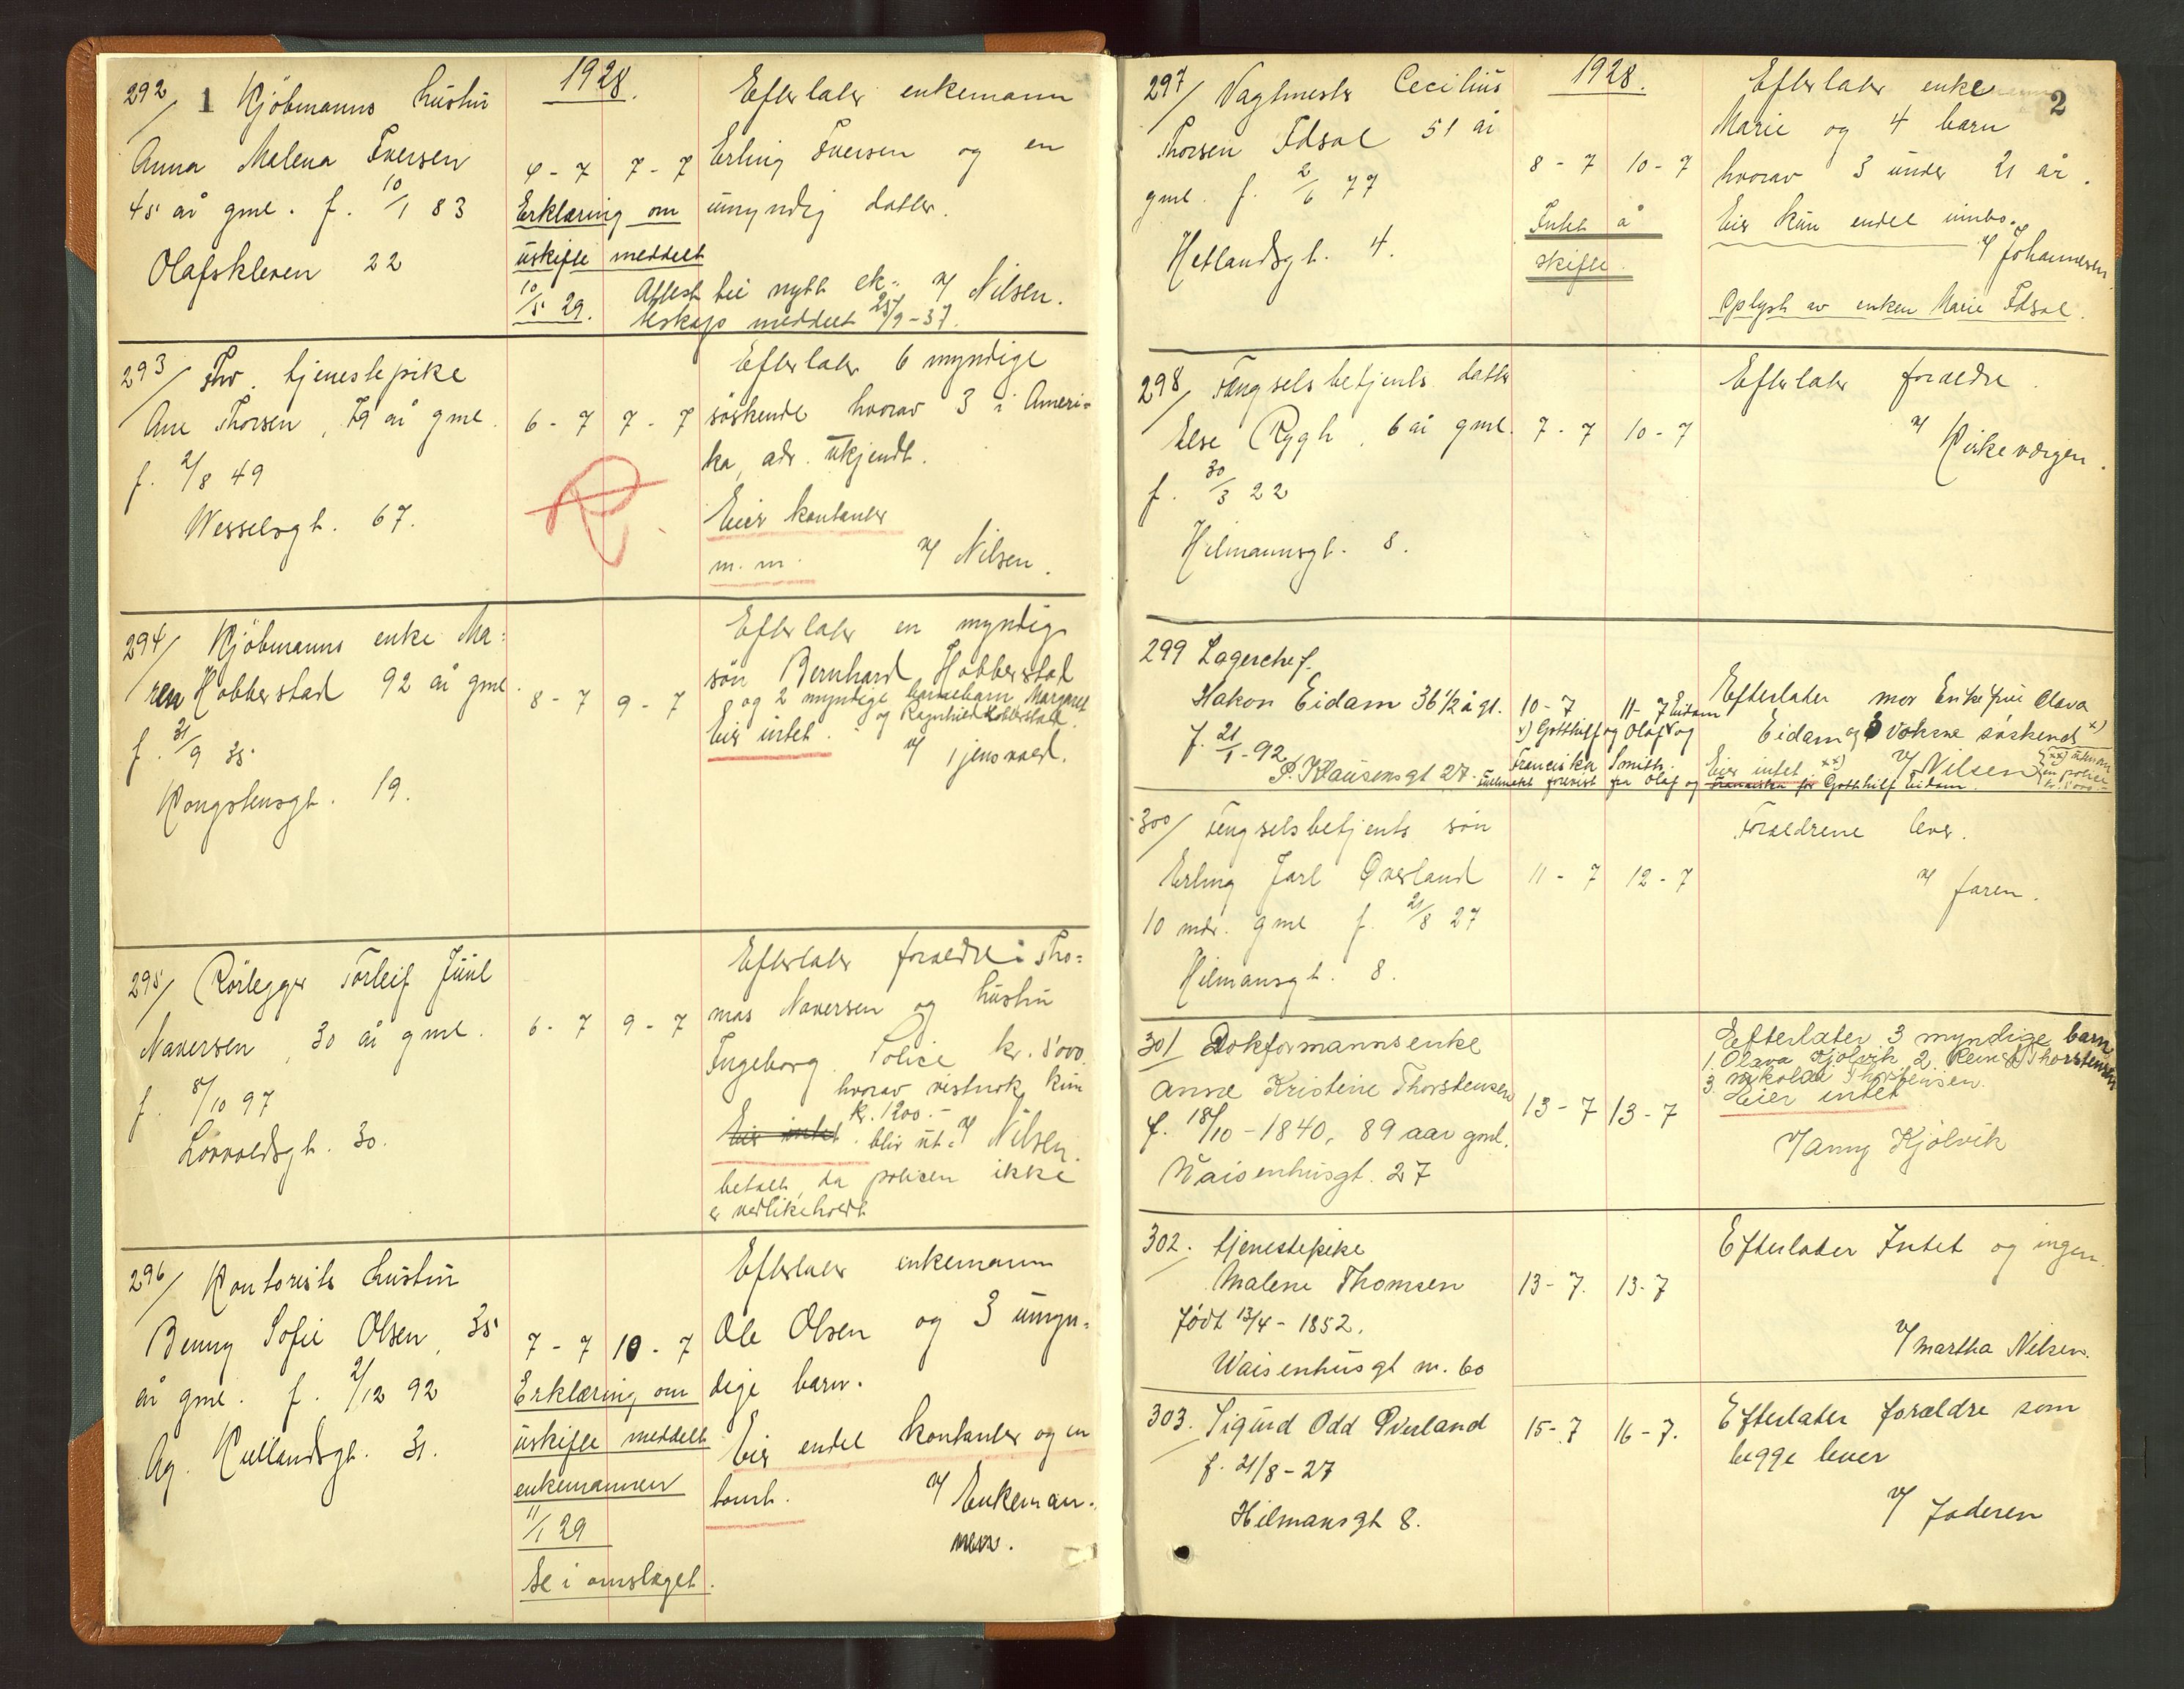 292/ 1 Kjöbmanns hustru
Anna Malena Iversen
45 år gml. f. 10/1 83
Olafskleven 22
1928.
4 - 7 7 - 7
Erklæring om
uskifte meddelt
10/5 29.
Efterlater enkemann
Erling Iversen og en
umyndig datter.
Attest til nytt ek-
teskap meddelt 25/9-37.
v/ Nilsen.
293/ Fhv. tjenestepike
Ane Thorsen, 79 år gml.
f. 2/8 49
Wesselsgt. 67.
6 - 7 7 - 7
R
Efterlater 6 myndige
söskende hvorav 3 i Ameri-
ka, adr. ukjendt.
Eier kontanter
m. m.
v/ Nilsen.
294/ Kjöbmanns enke Ma-
ren Hobberstad 92 år gml.
f. 31/9 35
Kongstensgt. 19.
8 - 7 9 - 7
Efterlater en myndig
sön Bernhard Hobberstad
og 2 myndige barnebarn Margaret
og Ragnhild Hobberstad.
Eier intet.
v/ Tjensvold.
295/ Rörlegger Torleif Juul
Naversen, 30 år gml.
f. 8/10 97
Lövvoldsgt. 30.
6 - 7 9 - 7
Efterlater forældre: Tho-
mas Naversen og hustru
Ingeborg. Police kr. 5000
hvorav vistnok kun
kr. 1200.-
Eier intet. blir ut- v/ Nilsen.
betalt, da policen ikke
er vedlikeholdt
296/ Kontorists hustru
Benny Sofie Olsen, 35
år gml. f. 2/12 92
Ag. Kiellandsgt. 31.
7 - 7 10 - 7
Erklæring om
uskifte meddelt
enkemannen
11/1 29
Se i omslaget.
Efterlater enkemann
Ole Olsen og 3 umyn-
dige barn.
Eier endel kontanter og en
tomt.
v/ Enkeman-
nen.
2
297/ Vagtmester Cecilius
Thorsen Idsal 51 år
gml. f. 2/6 77
Hetlandsgt. 4.
1928.
8 - 7 10 - 7
Intet å
skifte.
Efterlater enke
Marie og 4 barn
hvorav 3 under 21 år.
Eier kun endel innbo.
v/ Johannesen
Oplyst av enken Marie Idsal.
298/ Fengselsbetjents datter
Else Rygh, 6 år gml.
f. 30/3 22
Hilmannsgt. 8.
7 - 7 10 - 7
Efterlater forældre.
v/ Kirkevergen.
299 Lagerchef.
Hakon Eidam 36 1/2 å gl.
f. 21/1-92
P. Klausensgt 27.
10 - 7 11 - 7
x) Gotthilf og Olaf Eidam og
Franciska Smith.
Efterlater mor Enkefrue Olava
Eidam og 3 voksne söskende x)
Eier intet xx) v/ Nilsen
xx) utenom
en police
kr. 1000.-
fra Olaf og Franciska for Gotthilf Eidam.
300/ Fengselsbetjents sön
Erling Jarl Øverland
10 mdr. gml f. 21/8 27
Hilmansgt. 8.
11 - 7 12 - 7
Forældrene lever.
v/ faren.
301/ Dokformannsenke
Anne Kristine Thorstensen
f. 18/10 - 1840, 89 aar gml.
Waisenhusgt. 27
13 - 7 13 - 7
Efterlater 3 myndige barn
1. Olava Kjölvik 2. Reinert Thorstensen
3. Nikolai Thorstensen.
Eier intet
v/ Anny Kjölvik
302. tjenestepike
Malene Thomsen
født 13/4 - 1852.
Waisenhusgt nr. 60
13 - 7. 13 - 7
Efterlater Intet og ingen.
v/ Martha Nilsen.
303. Sigurd Odd Øverland
f. 21/8 - 27
Hilmansgt 8.
15 - 7 16 - 7.
Efterlater forældre som
begge lever
v/ Faderen